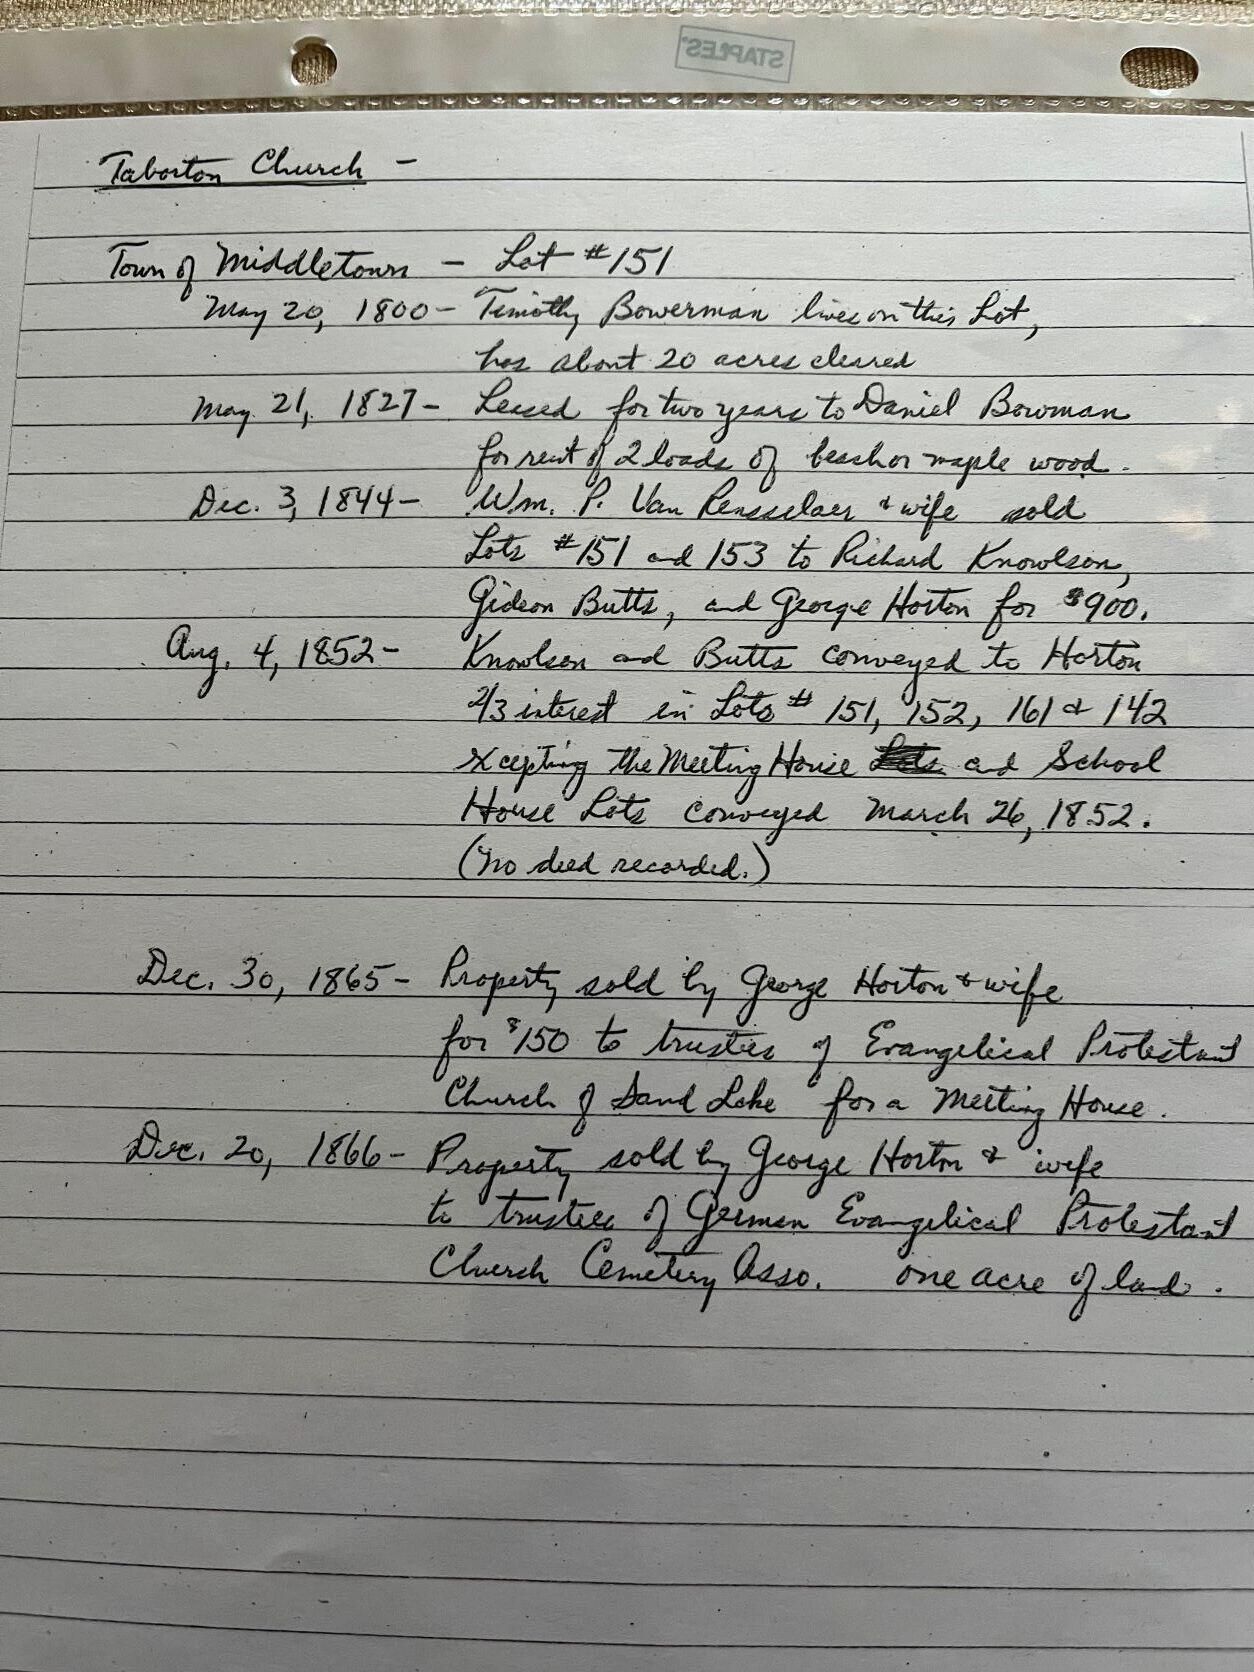 STAPLES®
Taborton Church -
Town of Middletown - Lot #151
May 20, 1800 - Timothy Bowerman lives on this Lot,
has about 20 acres cleared
May 21, 1827 - Leased for two years to Daniel Bowman
for rent of 2 loads of beach or maple wood.
Dec. 3, 1844 - Wm. P. Van Rensselaer & wife sold
Lots #151 and 153 to Richard Knowlson,
Gideon Butts, and George Horton for $900.
Aug. 4, 1852 - Knowlson and Butts conveyed to Horton
2/3 interest in Lots # 151, 152, 161 & 142
excepting the Meeting House and School
House Lots conveyed March 26, 1852.
(No deed recorded.)
Dec. 30, 1865 - Property sold by George Horton & wife
for $150 to trustees of Evangelical Protestant
Church of Sand Lake for a Meeting House.
Dec. 20, 1866 - Property sold by George Horton & wife
to trustees of German Evangelical Protestant
Church Cemetery Asso. one acre of land.